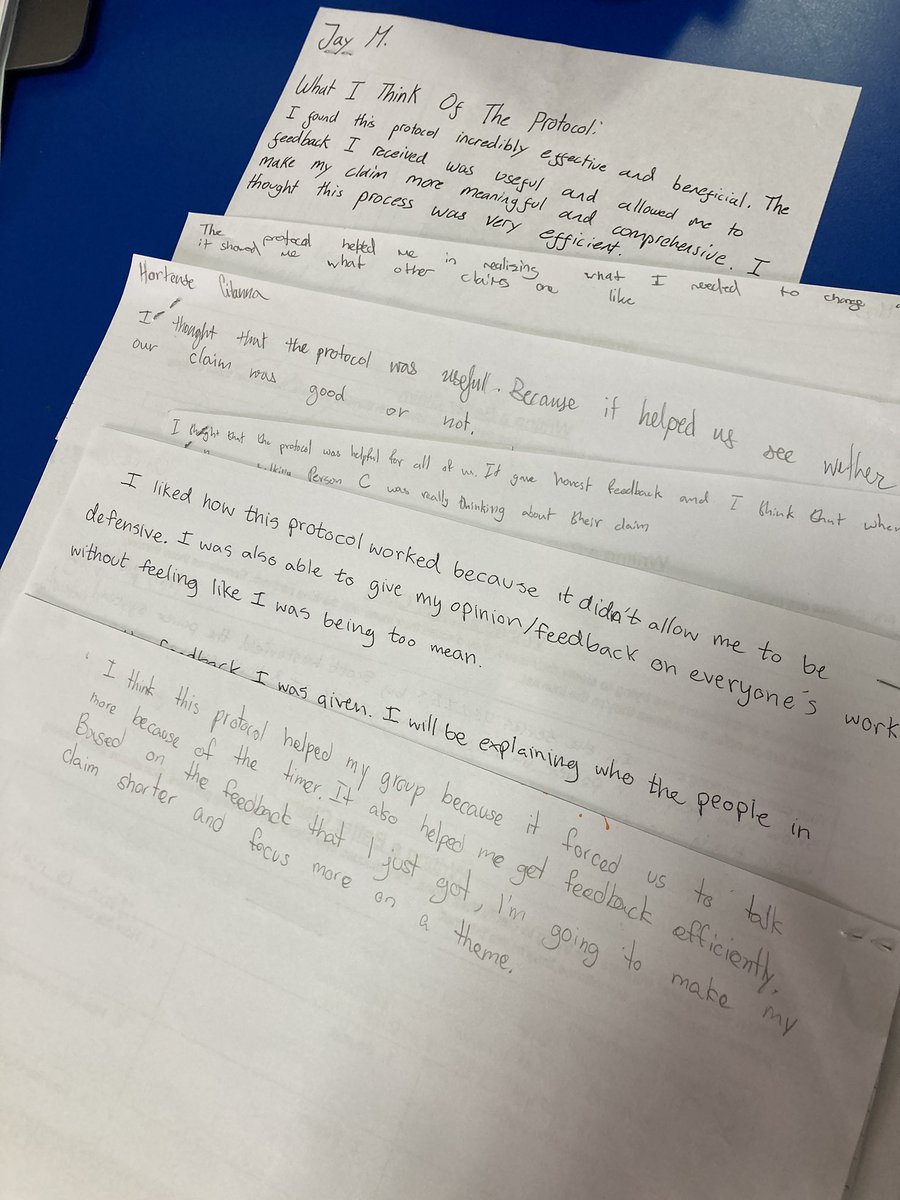 Jay M.
What I Think Of The Protocol:
I found this protocol incredibly effective and beneficial. The
feedback I received was useful and allowed me to
make my claim more meaningful and comprehensive. I
thought this process was very efficient.
The protocol helped me in realizing what I needed to change
it showed me what other claims are like
Hortense
I thought that the protocol was useful. Because it helped us see wether
our claim was good or not.
I thought that the protocol was helpful for all of us. It gave honest feedback and I think that when
talking Person C was really thinking about their claim
I liked how this protocol worked because it didn't allow me to be
defensive. I was also able to give my opinion/feedback on everyone's work
without feeling like I was being too mean.
feedback I was given. I will be explaining who the people in
I think this protocol helped my group because it forced us to talk
more because of the timer. It also helped me get feedback efficiently.
Based on the feedback that I just got, I'm going to make my
claim shorter and focus more on a theme.